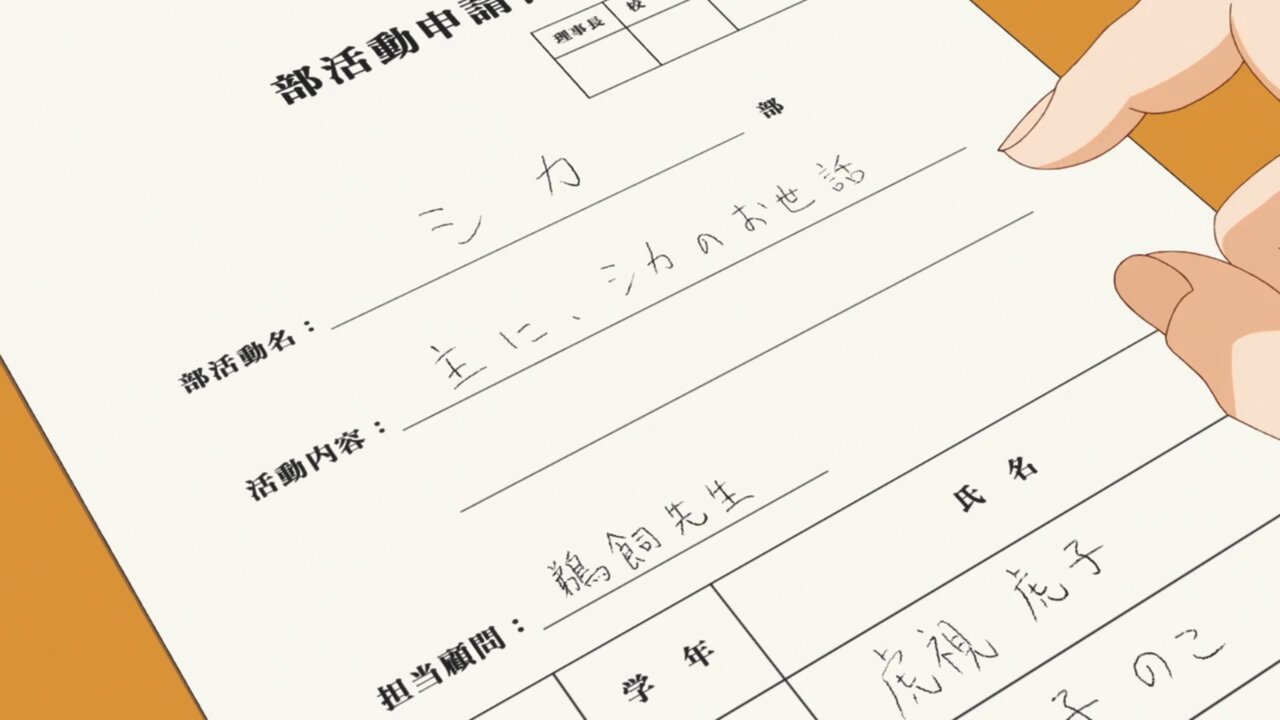 部活動申請
理事長 校
シカ 部
部活動名：
主に、シカのお世話
活動内容：
鵜飼先生
担当顧問：
学年 氏名
虎視 虎子
子 のこ